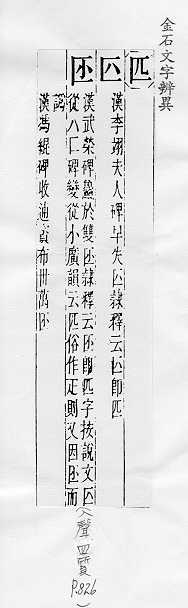 金石文字辨異
匹
漢李翊夫人碑早失隸釋云即匹
漢武榮碑蓋於雙隸釋云即匹字按說文匹
從八匸碑變從小廣韻云匹俗作疋則又因而
譌
漢馮緄碑收逋賨布卅萬
(入聲 四質
P.826
)